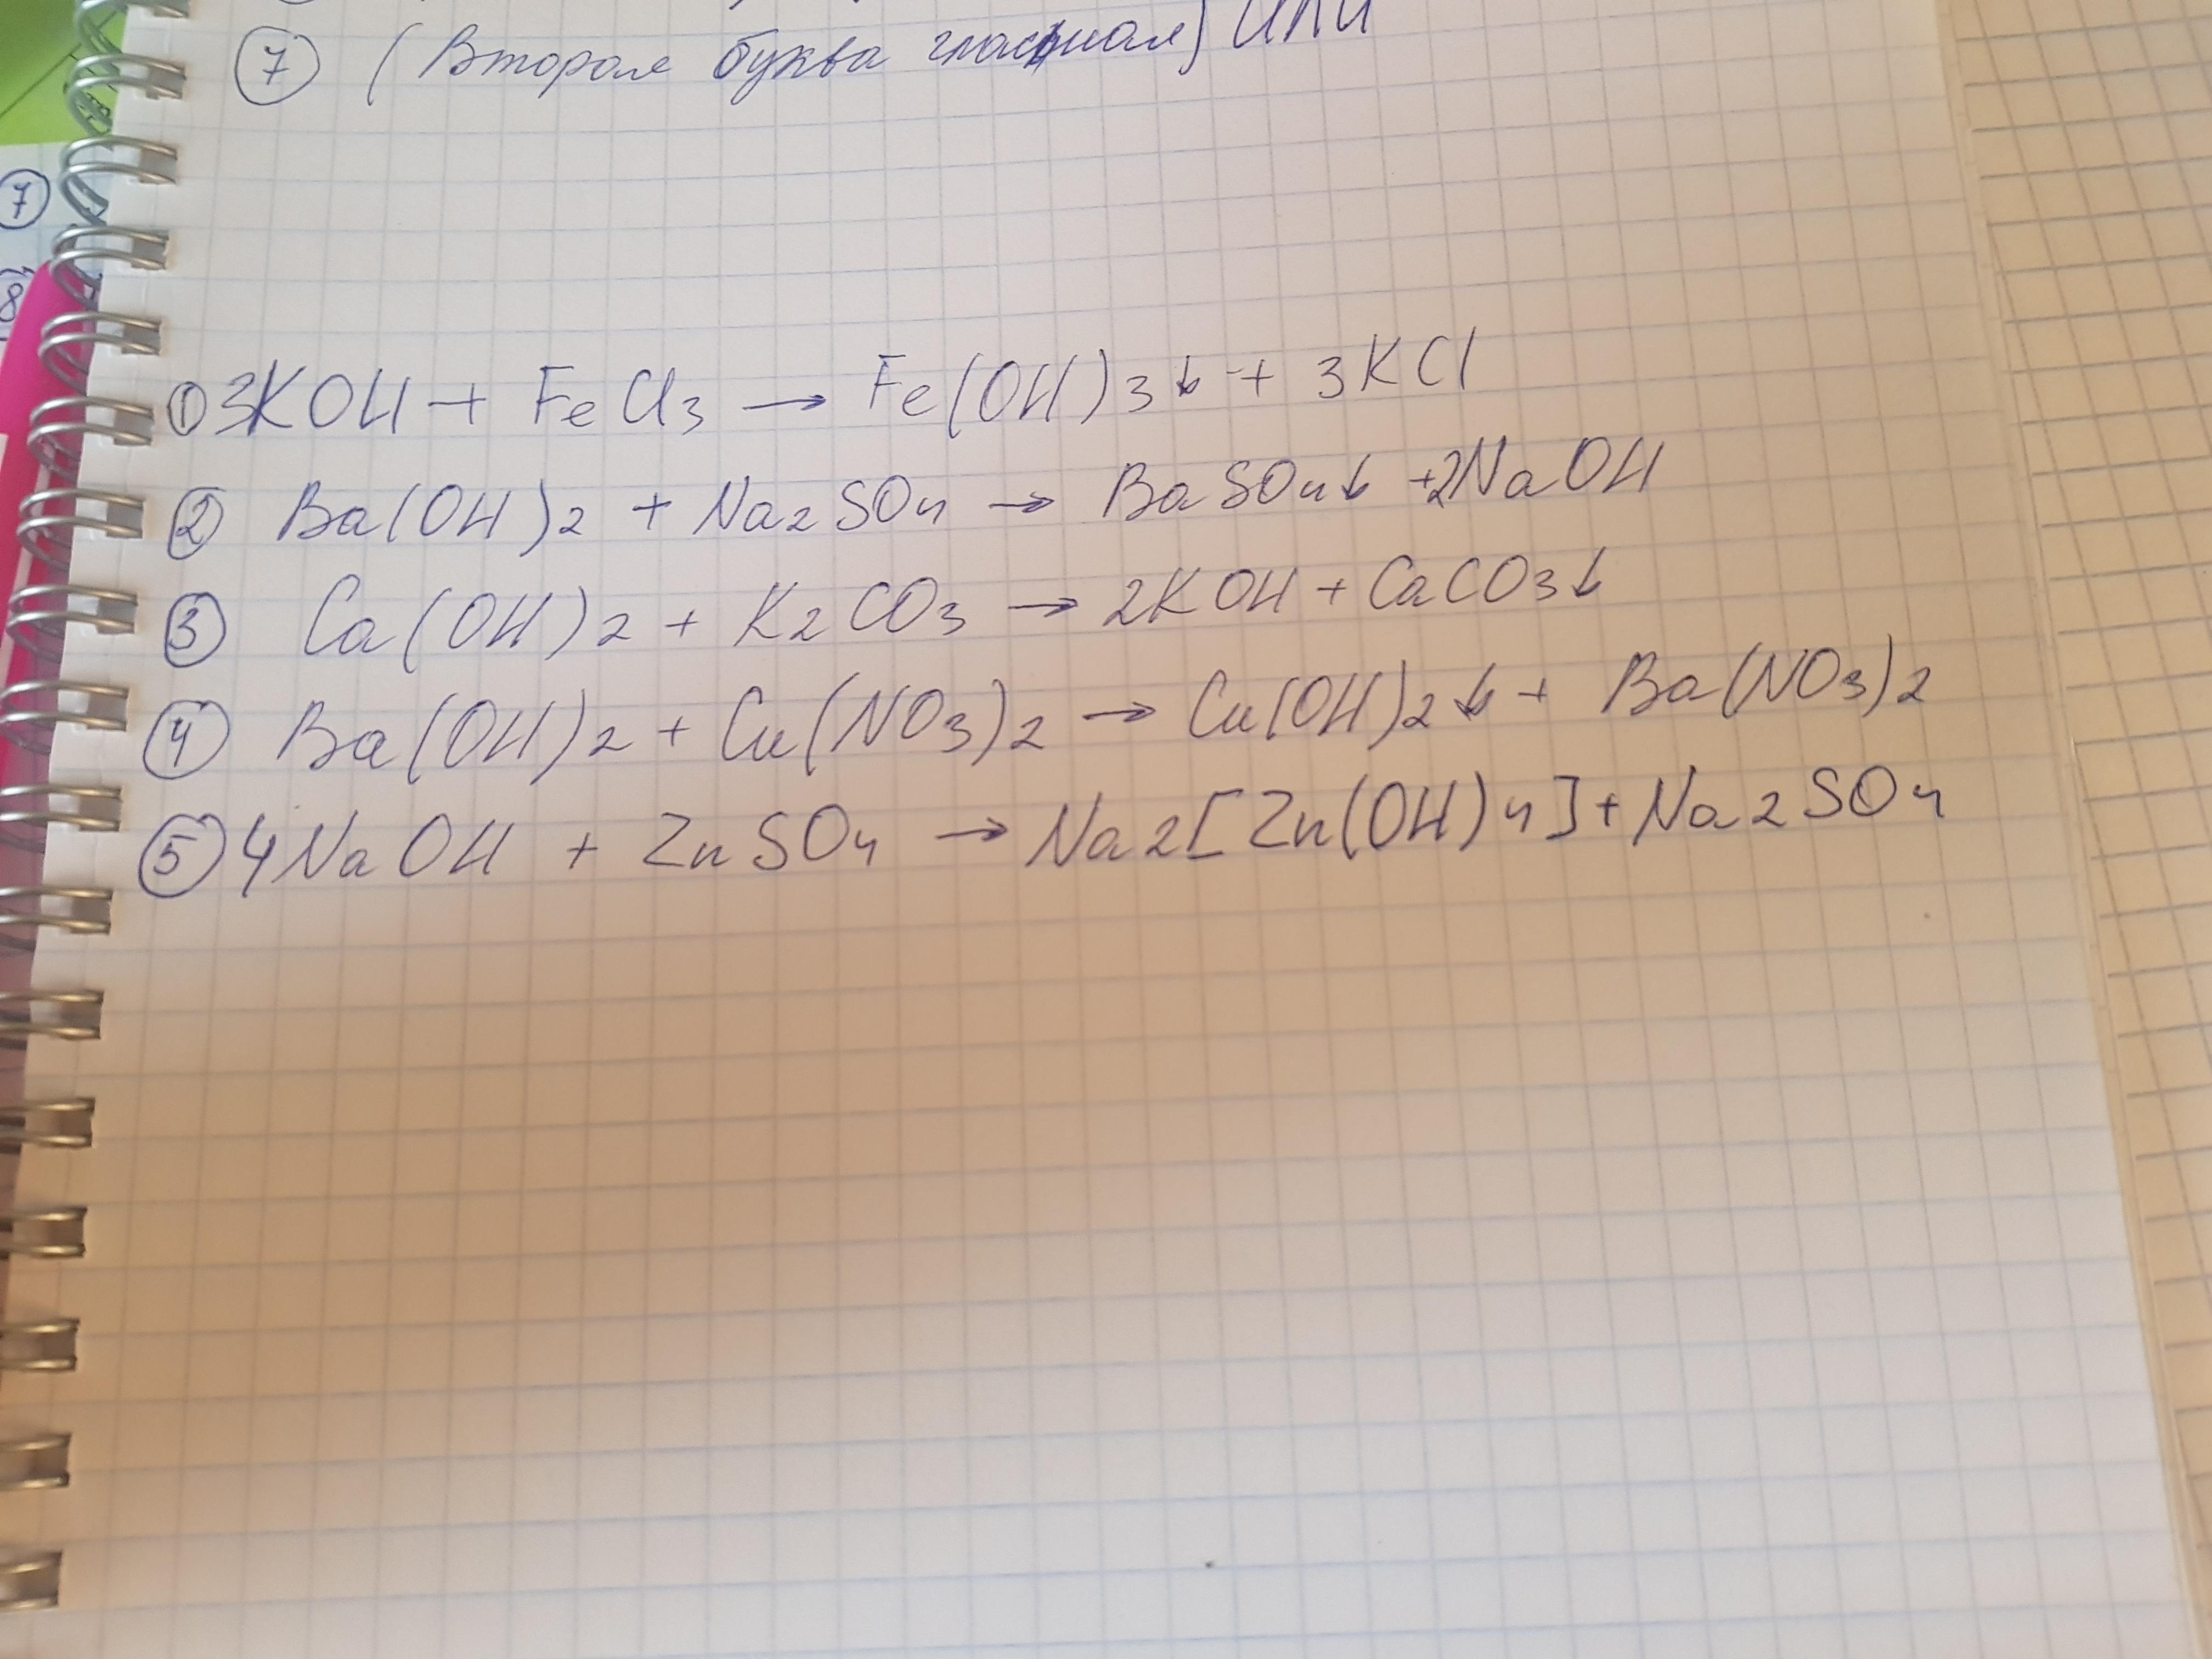 ⑦ (Вторая буква гласная) или
⑦
8
① 3KOH + FeCl₃ → Fe(OH)₃↓ + 3KCl
② Ba(OH)₂ + Na₂SO₄ → BaSO₄↓ + 2NaOH
③ Ca(OH)₂ + K₂CO₃ → 2KOH + CaCO₃↓
④ Ba(OH)₂ + Cu(NO₃)₂ → Cu(OH)₂↓ + Ba(NO₃)₂
⑤ 4NaOH + ZnSO₄ → Na₂[Zn(OH)₄] + Na₂SO₄